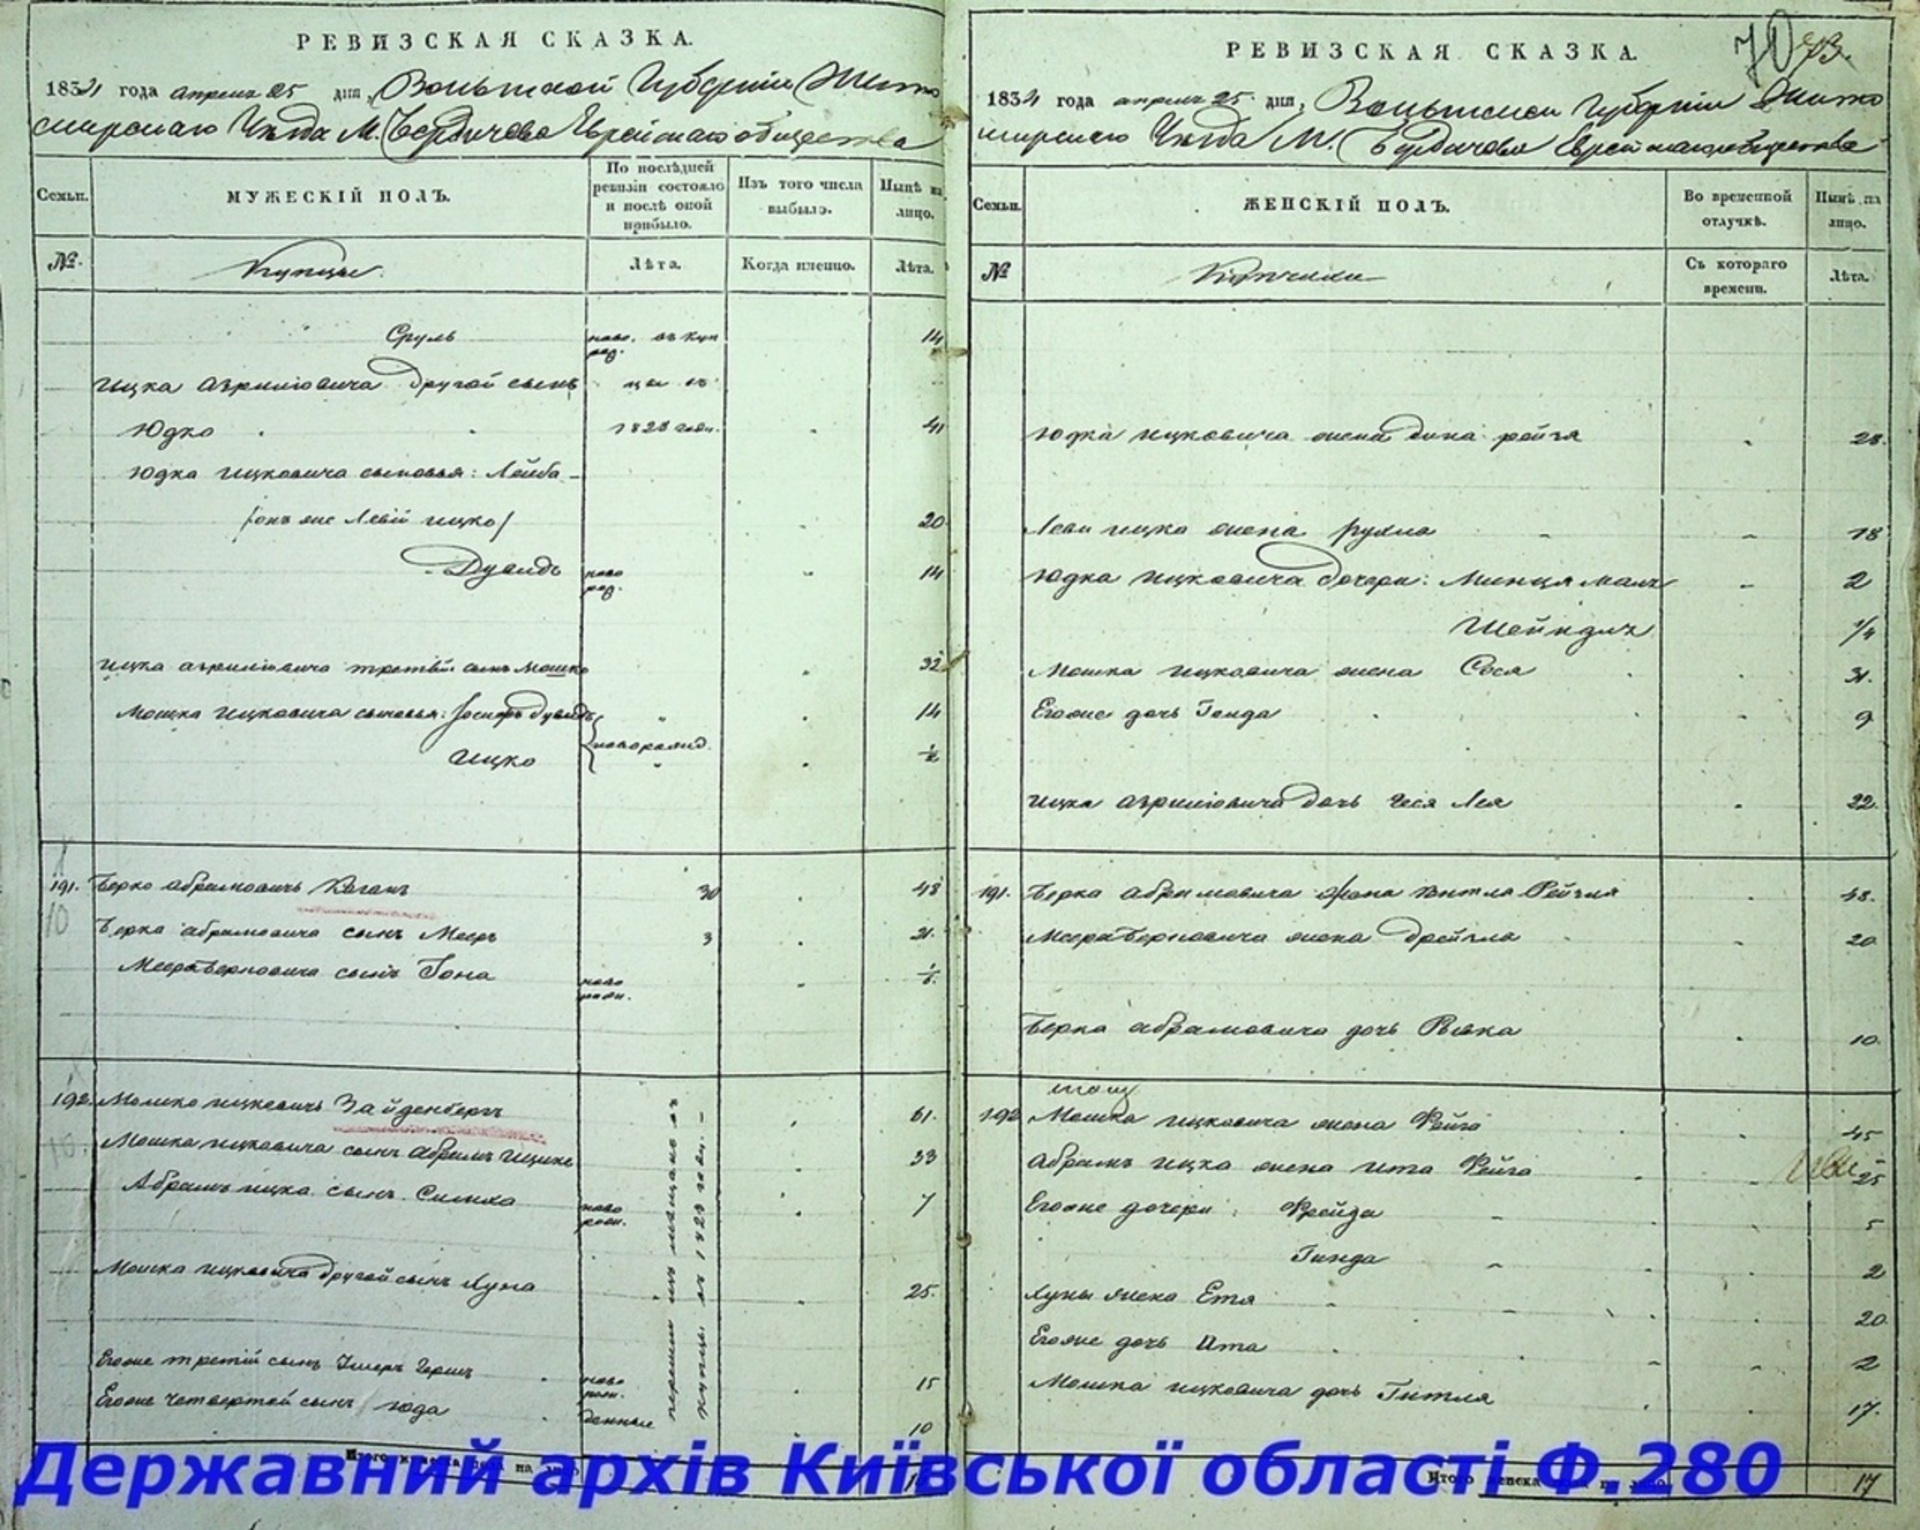 РЕВИЗСКАЯ СКАЗКА.
1834 года апреля 25 дня, Волынской Губернии Жито
мирскаго Уезда М. Бердичева Еврейскаго общества
Семьи.
МУЖЕСКІЙ ПОЛЪ.
По послѣдней ревизіи состояло и послѣ оной прибыло.
Изъ того числа выбыло.
Нынѣ на лицо.
№.
Купцы.
Лѣта.
Когда имянно.
Лѣта.
Сруль ново. род. въ куп 14
Ицка Авриловича другой сынъ цы въ
Юдко 1828 году. 41
Юдка Ицковича сыновья: Лейба
/онъ же Левій Ицко/ 20
Дувидъ ново род. 14
Ицка Авриловича третій сынъ Мошко 32
Мошка Ицковича сыновья: Іосифъ Дувидъ 14
Ицко новорожд. 1/2
191. Берко Абрамовичъ Каганъ 30 48
Берка Абрамовича сынъ Мееръ 3 21.
Меера Берковича сынъ Іона ново рож. 1/6.
192. Мошко Ицковичъ Зайденбергъ 61.
Мошка Ицковича сынъ Абрамъ Ицько 33
Абрамъ Ицка сынъ Симха ново рож. 7
Мошка Ицковича другой сынъ Хуна 25.
Егоже третій сынъ Гершъ ново рож. 15
Егоже четвертой сынъ Юда денные 10
въ купцы въ 1828 году.
РЕВИЗСКАЯ СКАЗКА.
70
73.
1834 года апреля 25 дня, Волынской Губернии Жито
мирскаго Уезда М. Бердичева Еврейскаго общества
Семьи.
ЖЕНСКІЙ ПОЛЪ.
Во временной отлучкѣ.
Нынѣ на лицо.
№
Купчихи
Съ котораго времени.
Лѣта.
Юдка Ицковича жена Дина Рейзя 28.
Леви Ицка жена Рухля 18
Юдка Ицковича дочери: Минця Малъ 2
Шейндля 1/4
Мошка Ицковича жена Сося 31.
Егоже дочь Генда 9
Ицка Авриловича дочь Чеся Лея 22.
191. Берка Абрамовича жена Ентля Рейзля 48.
Меера Берковича жена Дрейзля 20
Берка Абрамовича дочь Ривка 10.
192 Мошка Ицковича жена Фейга 45
Абрамъ Ицка жена Ита Фейга 25
Егоже дочери: Фрейда 5
Гинда 2
Хуны жена Етя 20
Егоже дочь Ита 2
Мошка Ицковича дочь Гитля 17.
Итого 17
Державний архів Київської області Ф.280